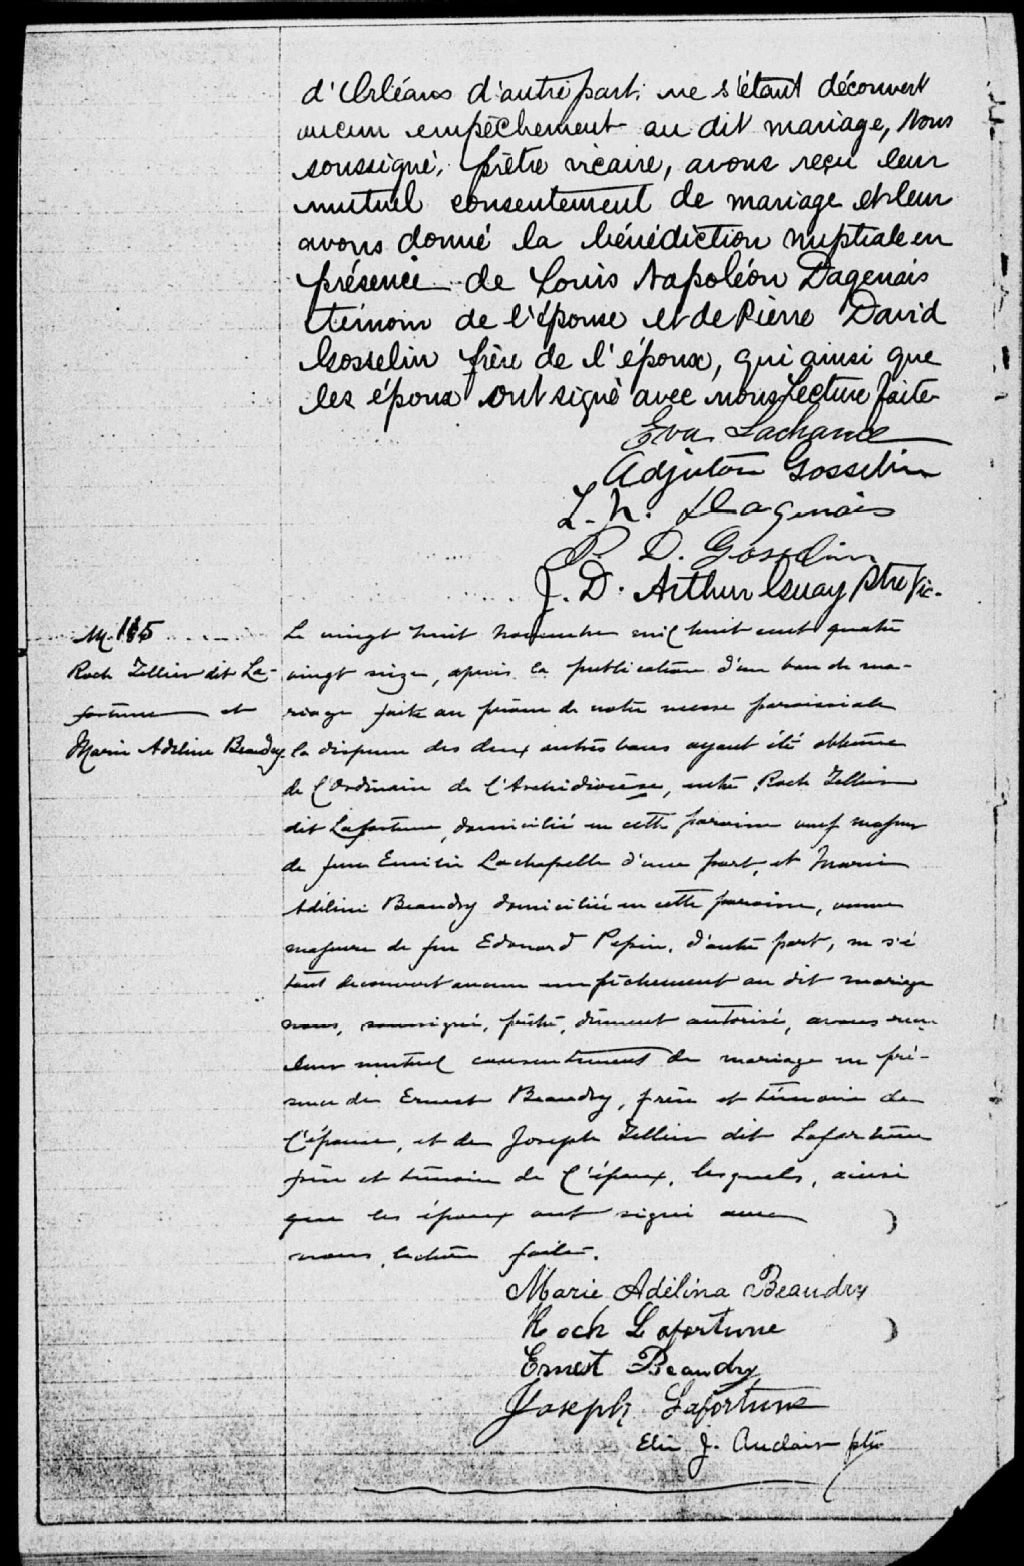 d'Orléans d'autre part, ne s'étant découvert
aucun empêchement au dit mariage, Nous
soussigné, prêtre vicaire, avons reçu leur
mutuel consentement de mariage et leur
avons donné la bénédiction nuptiale en
présence de Louis Napoléon Dagenais
témoin de l'épouse et de Pierre David
Gosselin frère de l'époux, qui ainsi que
les époux ont signé avec nous Lecture faite
Eva Lachance
Adjutor Gosselin
L. N. Dagenais
P. D. Gosselin
J. D. Arthur Guay Ptre Vic.
M. 185
Roch Tellier dit La-
fortune et
Marie Adeline Beaudry
Le vingt huit Novembre mil huit cent quatre
vingt seize, après la publication d'un ban de ma-
riage faite au prône de notre messe paroissiale
la dispense des deux autres bans ayant été obtenue
de l'Ordinaire de l'Archidiocèse, entre Roch Tellier
dit Lafortune, domicilié en cette paroisse veuf majeur
de feue Emilie Lachapelle d'une part, et Marie
Adéline Beaudry domiciliée en cette paroisse, veuve
majeure de feu Edouard Pepin, d'autre part, ne s'é
tant découvert aucun empêchement au dit mariage
nous, soussigné, prêtre, dûment autorisé, avons reçu
leur mutuel consentement de mariage en pré-
sence de Ernest Beaudry, frère et témoin de
l'épouse, et de Joseph Tellier dit Lafortune
frère et témoin de l'époux, lesquels, ainsi
que les époux ont signé avec
nous, lecture faite.
Marie Adélina Beaudry
Roch Lafortune
Ernest Beaudry
Joseph Lafortune
Elie J. Auclair ptre